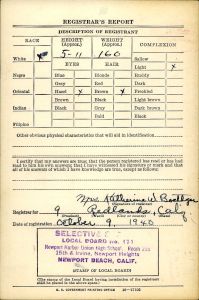 REGISTRAR'S REPORT
DESCRIPTION OF REGISTRANT
RACE HEIGHT (Approx.) WEIGHT (Approx.) COMPLEXION
White x 5-11 160 Sallow
EYES HAIR Light x
Negro Blue Blonde Ruddy
Gray Red Dark
Oriental Hazel x Brown x Freckled
Brown Black Light brown
Indian Black Gray Dark brown
Bald Black
Filipino
Other obvious physical characteristics that will aid in identification
I certify that my answers are true; that the person registered has read or has had
read to him his own answers; that I have witnessed his signature or mark and that all
of his answers of which I have knowledge are true, except as follows:
Mrs. Katherine W
Registrar for 9 Redlands, Calif
Date of registration October 9, 1940
LOCAL BOARD No. 171
Newport Harbor Union High School
15th & Irvine, Newport Heights
NEWPORT BEACH, CALIF.
(STAMP OF LOCAL BOARD)
(The stamp of the Local Board having jurisdiction of the registrant
shall be placed in the above space.)
U. S. GOVERNMENT PRINTING OFFICE 16-17105